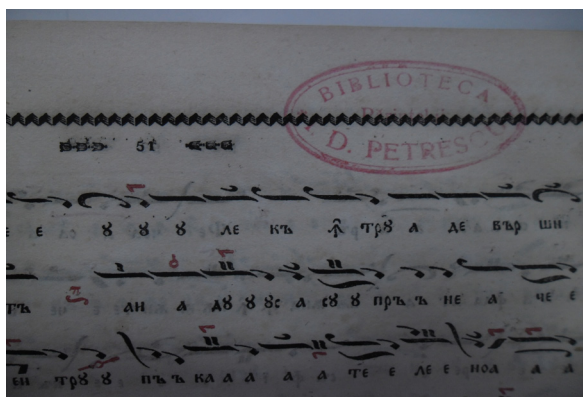 BIBLIOTECA
D. PETRESCU
51
Е Е Ꙋ Ꙋ Ꙋ ЛЕ КЪ Ꙟ ТРꙊ А ДЕ БЪР ШИ
ТЪ АН А ДꙊ Ꙋ Ꙋс А сꙊ Ꙋ ПРЪ Ъ НЕ А ЧЕ Е
ЕН ТРꙊ Ꙋ ПЪ Ъ КЛА А А А А ТЕ Е ЛЕ Е НОА А А